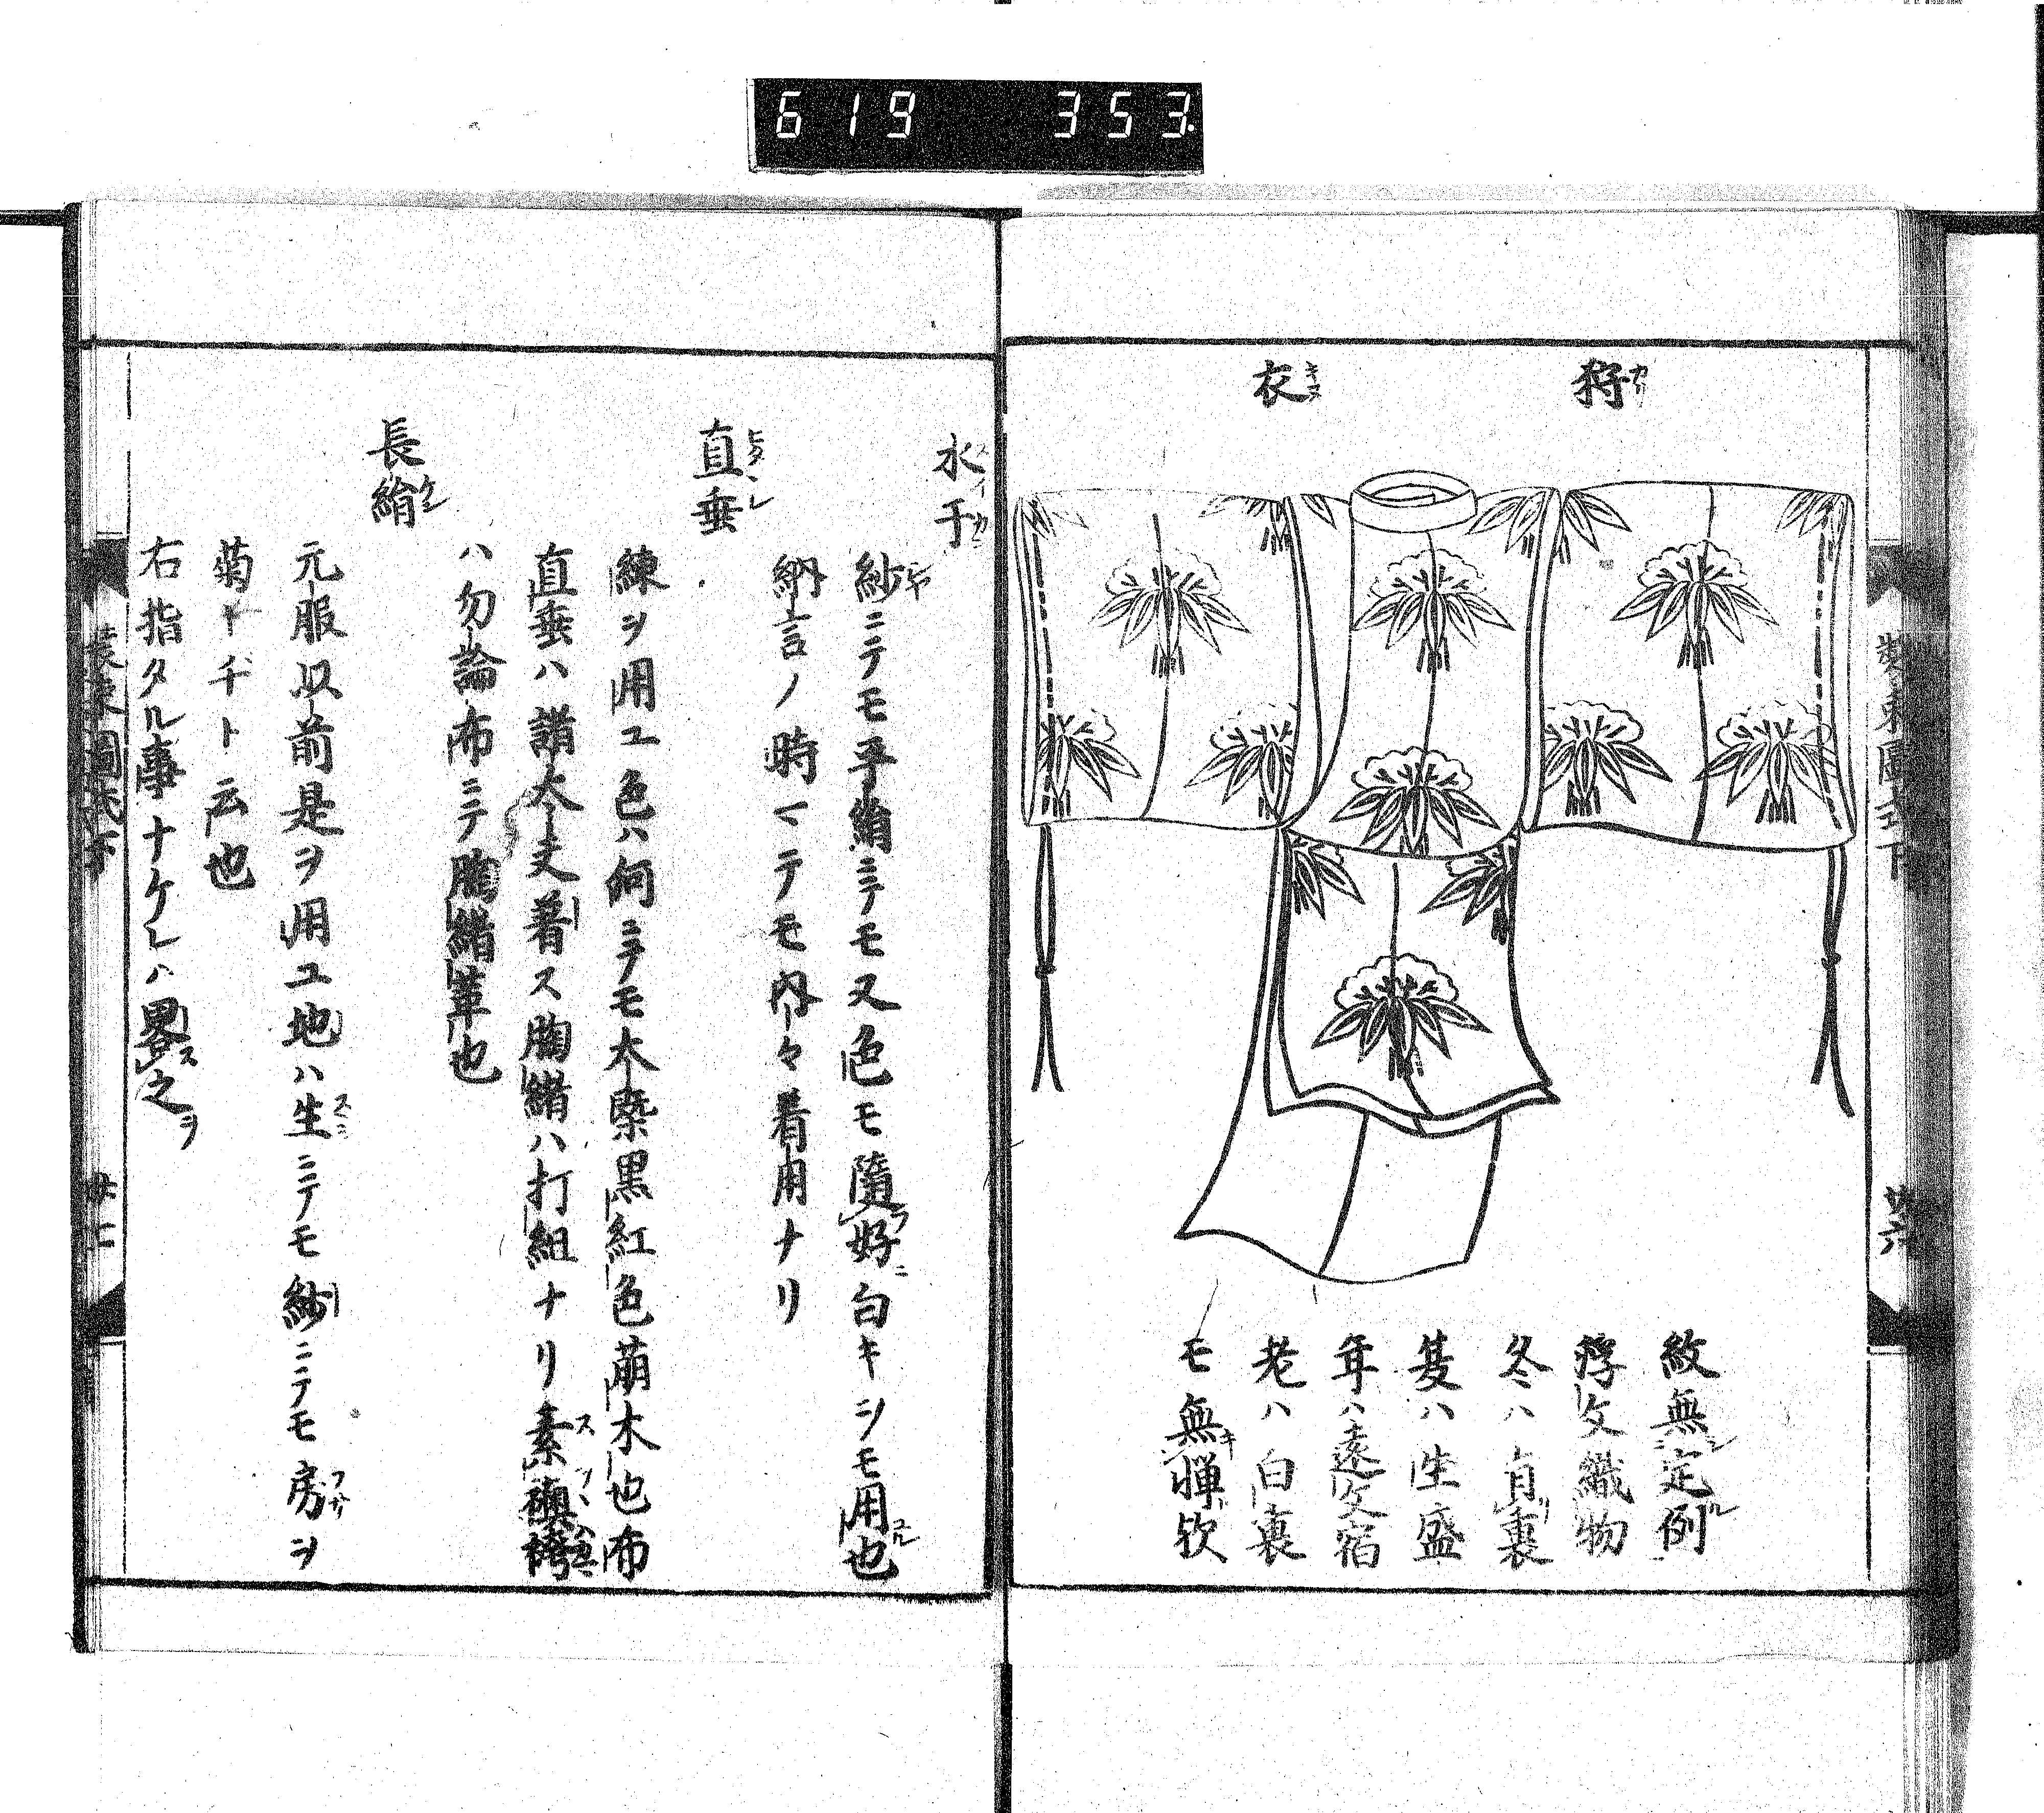 619 353.
狩衣
紋無定例
浮文織物
冬ハ有裏
夏ハ生盛
年ハ遠文宿
老ハ白裏
モ無憚欤
装束圖式下
廿六
水干
紗ニテモ平絹ニテモ又色モ隨好白キシモ用也
納言ノ時マテモ内々着用ナリ
直垂
練ヲ用ユ色ハ何ニテモ木染黒紅色萠木也布
直垂ハ諸大夫着ス胸緒ハ打組ナリ素襖袴
ハ勿論布ニテ胸緒革也
長絹
元服以前是ヲ用ユ地ハ生ニテモ紗ニテモ房ヲ
菊トチト云也
右指タル事ナケレハ畧之
装束圖式下